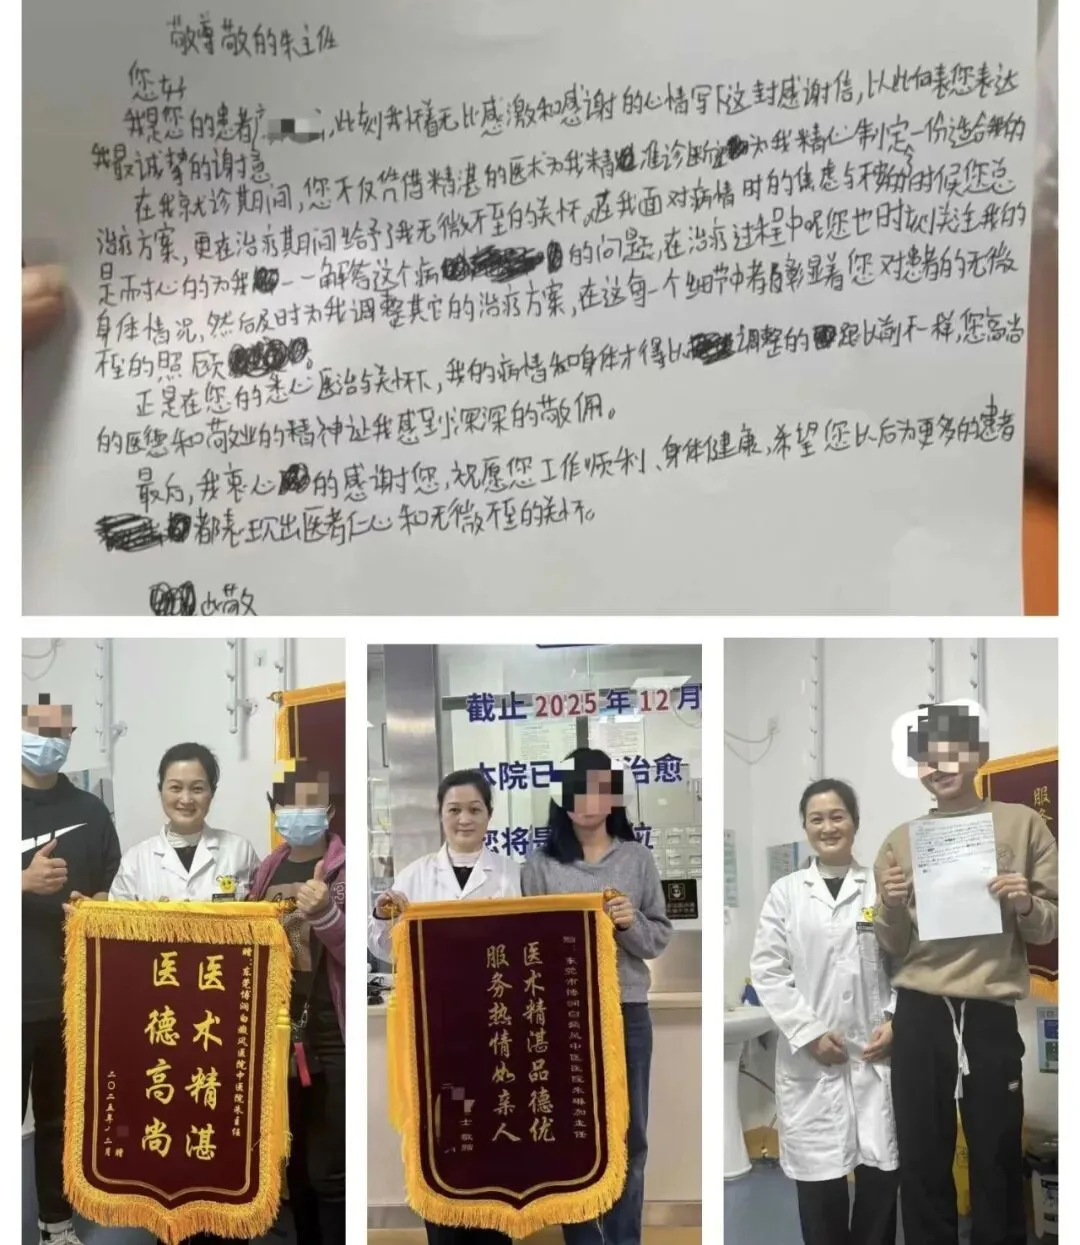 敬尊敬的朱主任
您好
我是您的患者，此刻我怀着无比感激和感谢的心情写下这封感谢信，以此向表您表达
我最诚挚的谢意
在我就诊期间，您不仅凭借精湛的医术为我精准诊断为我精心制定一份适合我的
治疗方案，更在治疗期间给予了我无微不至的关怀。在我面对病情时的焦虑与不的时候您总
是耐心的为我一一解答这个病的问题，在治疗过程中呢您也时刻关注我的
身体情况，然后及时为我调整其它的治疗方案，在这每一个细节中都彰显着您对患者的无微
至的照顾。
正是在您的悉心医治与关怀下，我的病情和身体才得以调整的跟以前不一样，您高尚
的医德和敬业的精神让我感到深深的敬佣。
最后，我衷心的感谢您，祝愿您工作顺利、身体健康，希望您以后为更多的患者
都表现出医者仁心和无微不至的关怀。
此敬
赠：东莞博润白癜风医院中医院朱主任
医术精湛
医德高尚
二〇二五年 二月 赠
截止 2025 年 12 月
本院已 治愈
您将是
东莞市博润白癜风中医医院朱琳加主任
医术精湛品德优
服务热情如亲人
士敬赠
服务